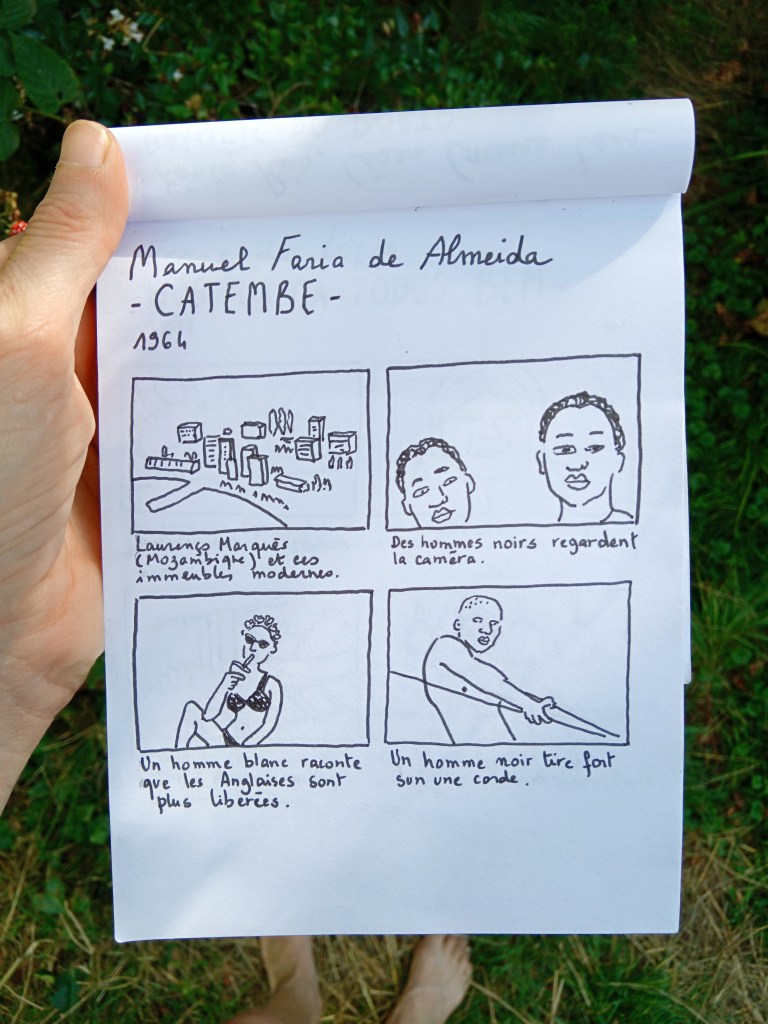 Manuel Faria de Almeida
- CATEMBE -
1964
Laurenço Marquès
(Mozambique) et ces
immeubles modernes.
Des hommes noirs regardent
la caméra.
Un homme blanc raconte
que les Anglaises sont
plus libérées.
Un homme noir tire fort
sur une corde.